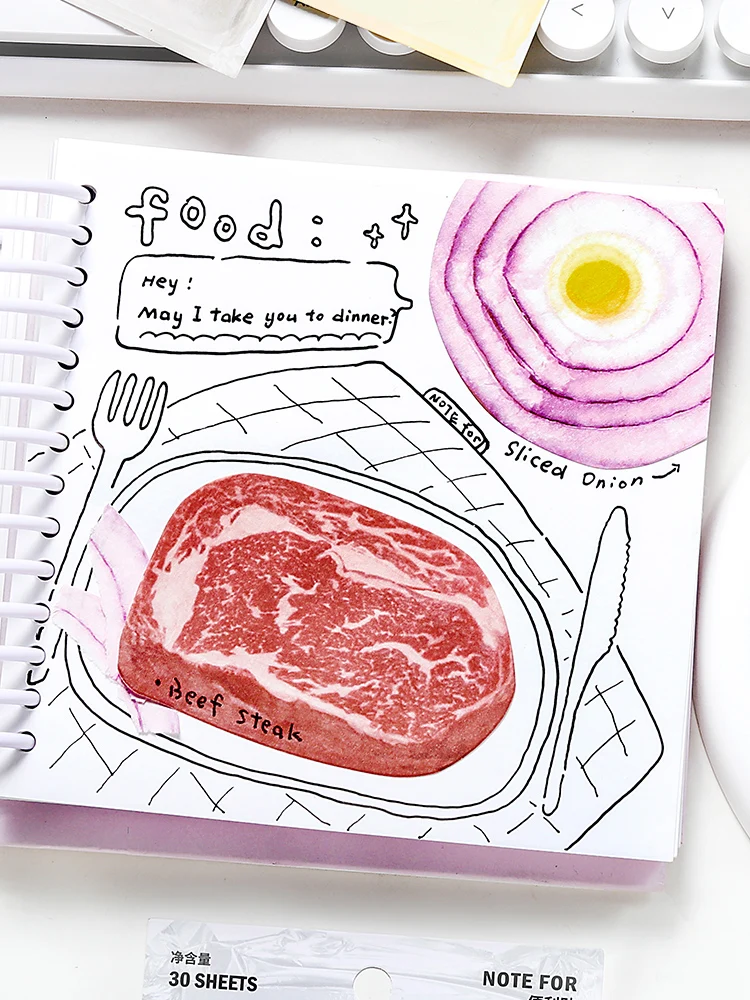 food:
Hey!
May I take you to dinner?
NOTE for
Sliced Onion
• Beef steak
净含量
30 SHEETS
NOTE FOR